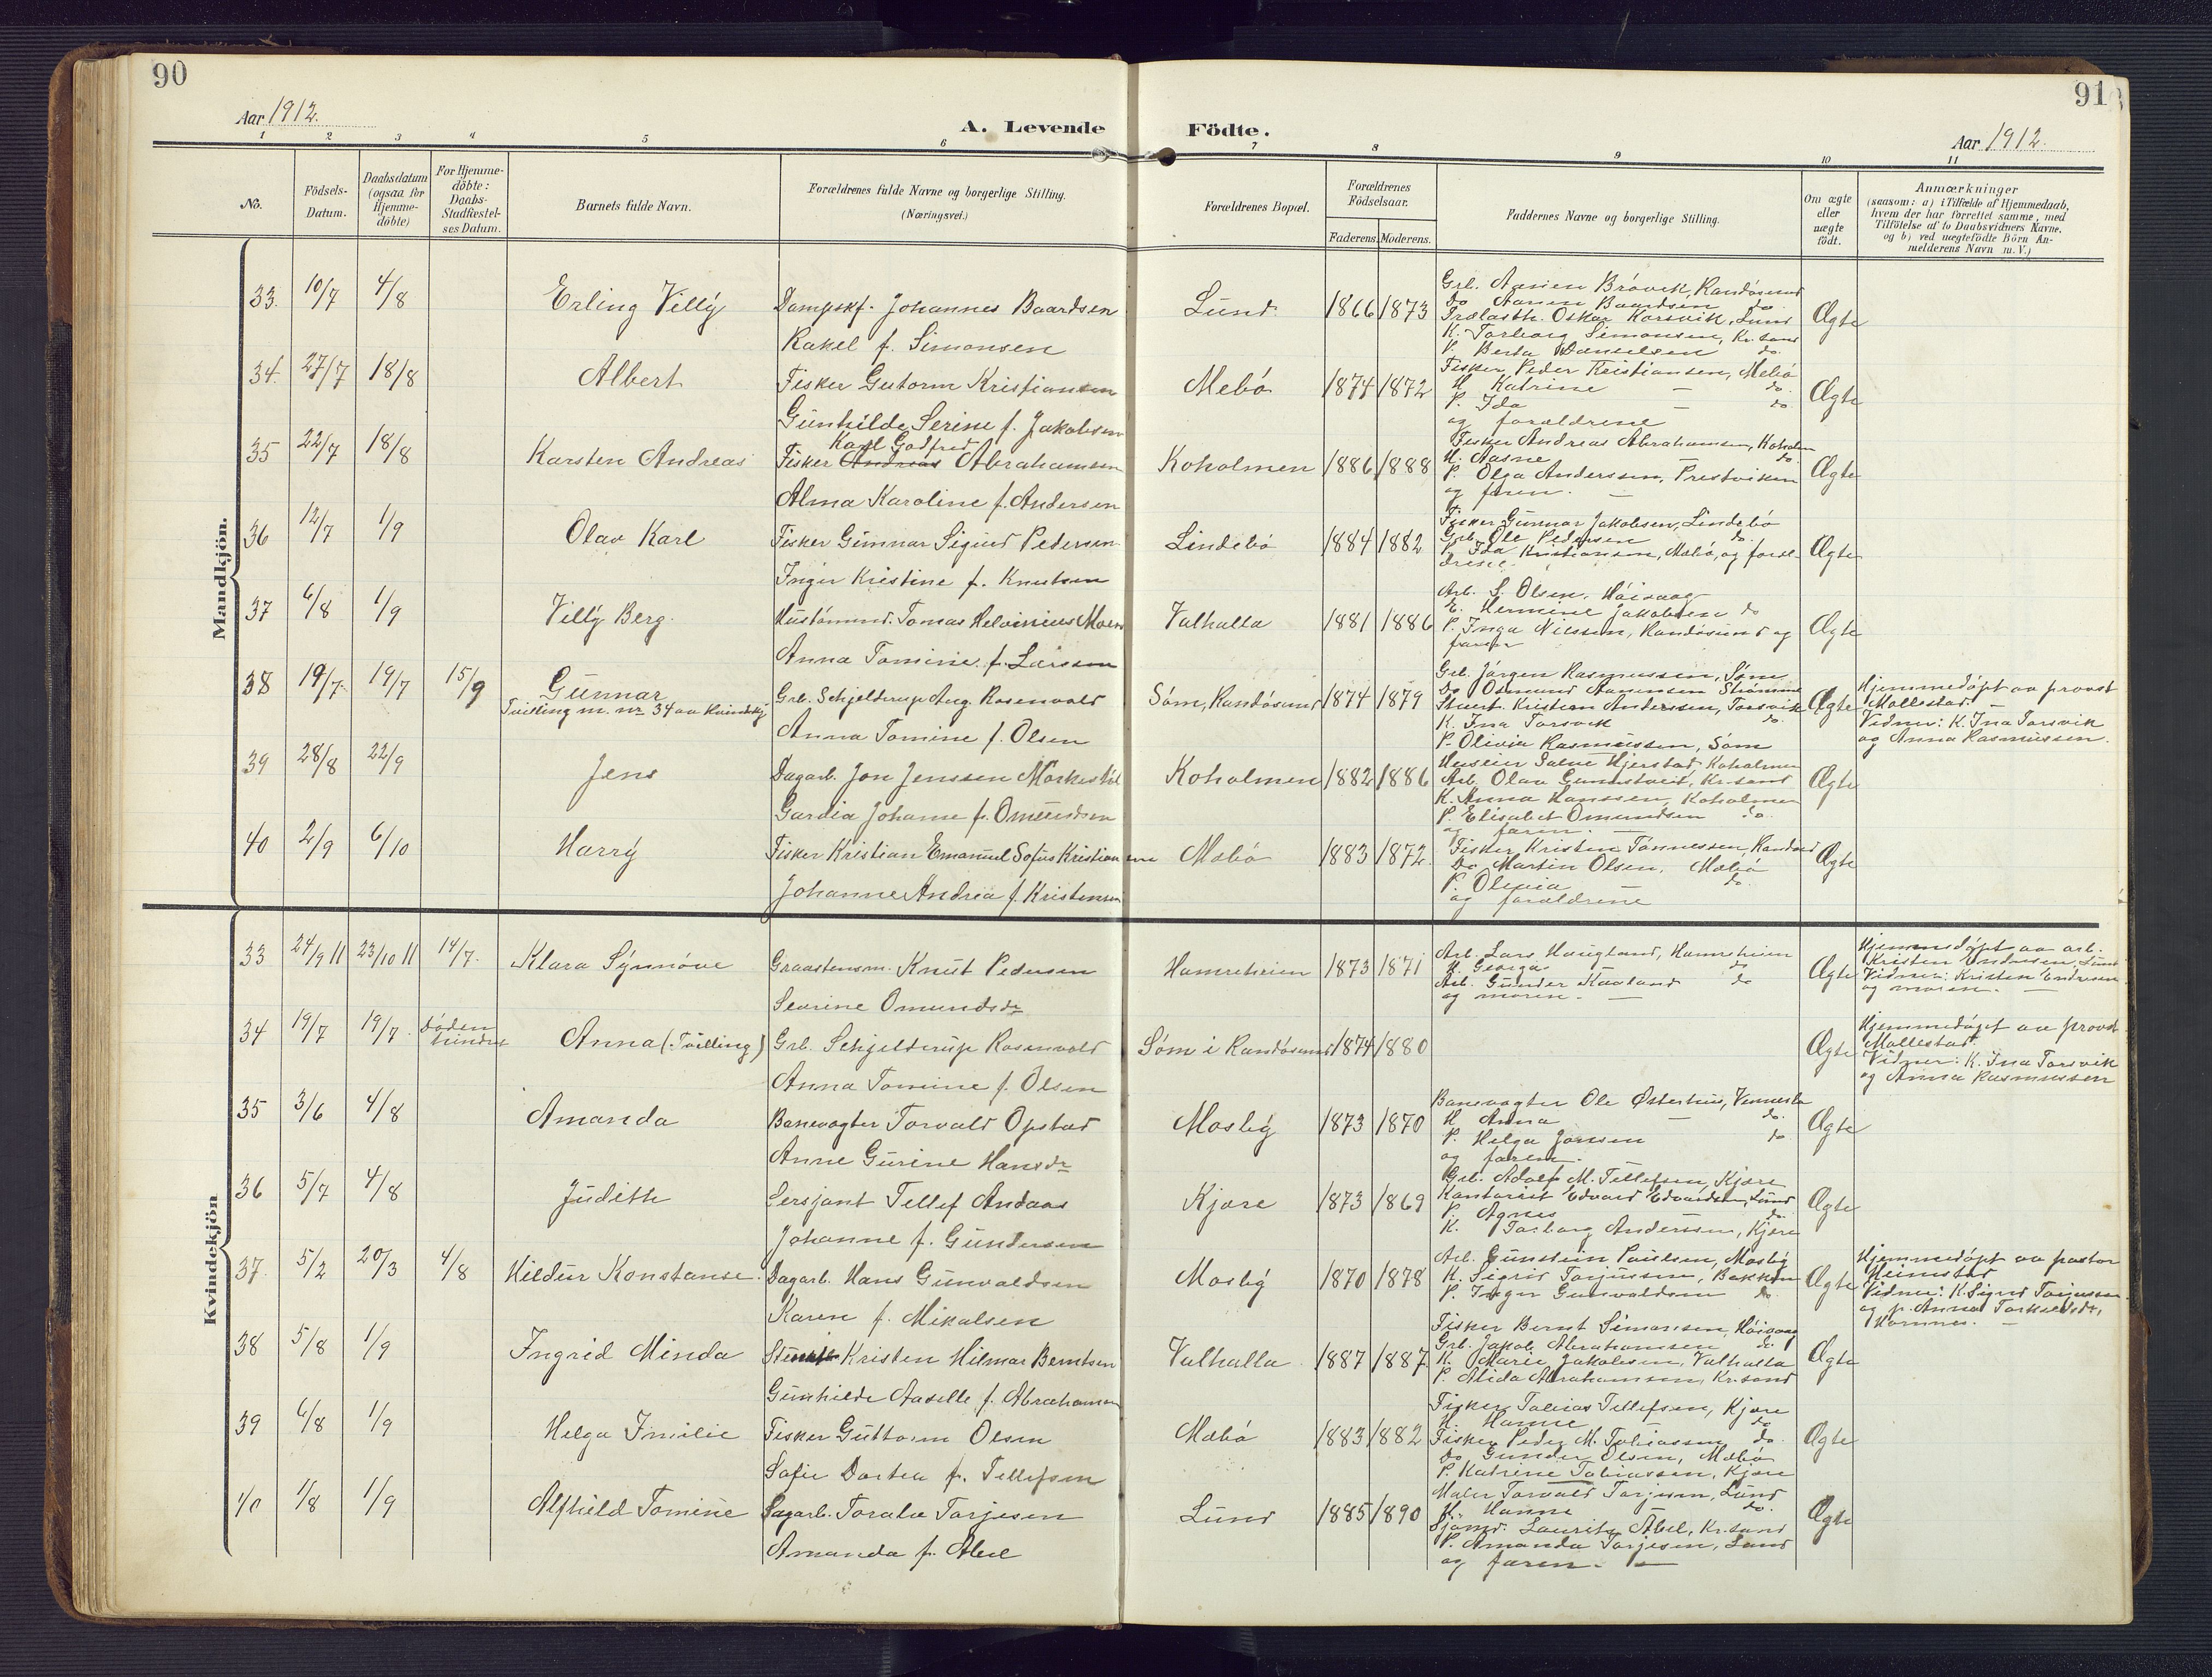 90
Aar 1912.
A. Levende
1 2 3 4 5 6
No.
Födsels-
Datum.
Daabsdatum
(ogsaa for
Hjemme-
döbte)
For Hjemme-
döbte:
Daabs-
Stadfæstel-
ses Datum.
Barnets fulde Navn.
Forældrenes fulde Navne og borgerlige Stilling.
(Næringsvei.)
Mandkjön.
33. 10/7 4/8 Erling Villy Dampskf. Johannes Baardsen
Rakel f. Simonsen
34. 27/7 18/8 Albert Fisker Gutorm Kristiansen
Gunhilde Serine f. Jakobsen
Karl Godfred
35 22/7 18/8 Karsten Andreas Fisker Andreas Abrahamsen
Alma Karoline f. Andersen
36 12/7 1/9 Olav Karl Fisker Gunnar Sigurd Pedersen
Inger Kristine f. Knutsen
37 6/8 1/9 Villy Berg. Tomas Helvinius Moen
Anna Tomine f. Larsen
38 19/7 19/7 15/9 Gunnar Grb. Schjelderup Aug. Rosenvold
Tvilling m. nr 34 av Kvindekj.
Anna Tomine f. Olsen
39 28/8 22/9 Jens Dagarb. Jon Jenssen
Gardia Johanne f. Omundsen
40 2/9 6/10 Harry Fisker Kristian Emanuel Sofus Kristiansen
Johanne Andrea f. Kristensen
Kvindekjön
33 24/9 11 23/10 11 14/7. Klara Synnöve Graastensm. Knut Pedersen
Severine Omundsdr
34 19/7 19/7 döden hindret Anna (Tvilling) Grb. Schjelderup Rosenvold
Anna Tomine f. Olsen
35 3/6 4/8 Amanda Banevogter Torvald Opstad
Anne Gurine Hansdr
36 5/7 4/8 Judith Sersjant Tellef Andaas
Johanne f. Gundersen
37. 5/2 20/3 4/8 Hildur Konstanse Dagarb. Hans Gunvaldsen
Karen f. Mikalsen
38 5/8 1/9 Ingrid Minda Kristen Hilmar Berntsen
Gunhilde Aaselle f. Abrahamsen
39 6/8 1/9 Helga Emilie Fisker Guttorm Olsen
Sofie Dortea f. Tellefsen
40 1/8 1/9 Alfhild Tomine Dagarb. Toralv Torjesen
Amanda f. Abel
91
Födte.
Aar 1912.
7 8 9 10 11
Forældrenes Bopæl.
Forældrenes
Födselsaar.
Faderens. Moderens.
Faddernes Navne og borgerlige Stilling.
Om ægte
eller
uægte
födt.
Anmærkninger
(saasom: a) i Tilfælde af Hjemmedaab,
hvem der har forrettet samme, med
Tilföielse af to Daabsvidners Navne,
og b) ved uægtefödte Börn An-
melderens Navn m. V.)
Grb. Aanen Brövik, Randösund
do Aanen Baardsen do.
Lund 1866 1873 Trælasth. Oskar Korsvik, Lund Ægte
K. Torborg Simonsen, Kr.sand
P. Berta Danielsen do.
Fisker Peder Kristiansen, Mebö
Mebö 1874 1872 H. Katrine — do. Ægte
P. Ida — do.
og forældrene
Fisker Andreas Abrahamsen, Koholm
Koholmen 1886 1888 H. Aasne — do. Ægte
P. Olga Anderssen, Prestviken
og faren. —
Fisker Gunnar Jakobsen, Lindebö
Lindebö 1884 1882 Grb. Ole Pedersen do. Ægte
P. Ida Kristiansen, Mebö, og foræl-
drene.
Arb. S. Olsen, Höivaag
Valhalla 1881 1886 E. Hermine Jakobsen do Ægte
P. Inga Nilssen, Randösund og
faren
Grb. Jörgen Rasmussen, Söm
do Osmund Aanensen Strömme
Söm, Randösund 1874 1879 Stuert. Kristian Anderssen, Torsvik Ægte
K. Ina Torsvik do.
P. Olivia Rasmussen, Söm
Hjemmedöpt av provst
Mollestad. —
Vidner: K. Ina Torsvik
og Anna Rasmussen.
Koholmen 1882 1886 Ægte
K. Anna Hanssen, Koholmen
P. Elisabet Omundsen do.
og faren. —
Fisker Kristen Tönnessen, Randösd
Mebö 1883 1872. do Martin Olsen, Mebö Ægte
P. Olevia do.
og forældrene
Arb. Lars Haugland, Hamreheien
Hamreheien 1873 1871 H. Georga do Ægte
Arb. Gunder Kaaland do
og moren. —
Hjemmedöpt av arb.
Kristen Endresen, Lund
Vidner: Kristen Endresen
og moren. —
Söm i Randösund 1874 1880 Ægte
Hjemmedöpt av provst
Mollestad.
Vidner: K. Ina Torsvik
og Anna Rasmussen
Banevogter Ole Østerhus, Vennesla
Mosby 1873 1870 H Anna — do. Ægte
P. Helga Jonsen do.
og faren.
Grb. Adolf M. Tellefsen, Kjære
Kjære 1873 1869 Kontorist Edvard Edvardsen, Lund Ægte
P. Agnes do.
K. Torborg Anderssen, Kjære
Arb. Gunstein Paulsen, Mosby
Mosby 1870 1878 K. Sigrid Torjussen, Bakken Ægte
P. Inger Gunvaldsen do
Hjemmedöpt av pastor
Heimstad
Vidner: K. Sigrid Torjussen
og p. Anna Torkildsdr,
Hornnes. —
Fisker Bernt Simonsen, Höivaag
Grb. Jakob Abrahamsen do.
Valhalla. 1887 1887 K. Marie Jakobsen, Valhalla Ægte
P. Alida Abrahamsen, Kr.sand
Fisker Tobias Tellefsen, Kjære
H. Hanne — do
Mebö 1883 1882 Fisker Peder M. Tobiassen do. Ægte
do Gunder Olsen, Mebö
P. Katrine Tobiassen, Kjære
Maler Torvald Torjesen, Lund
Lund 1885 1890 H. Hanne — do. Ægte
Sjömd. Lauritz Abel, Kr.sand
P. Amanda Torjesen, Lund
og faren. —